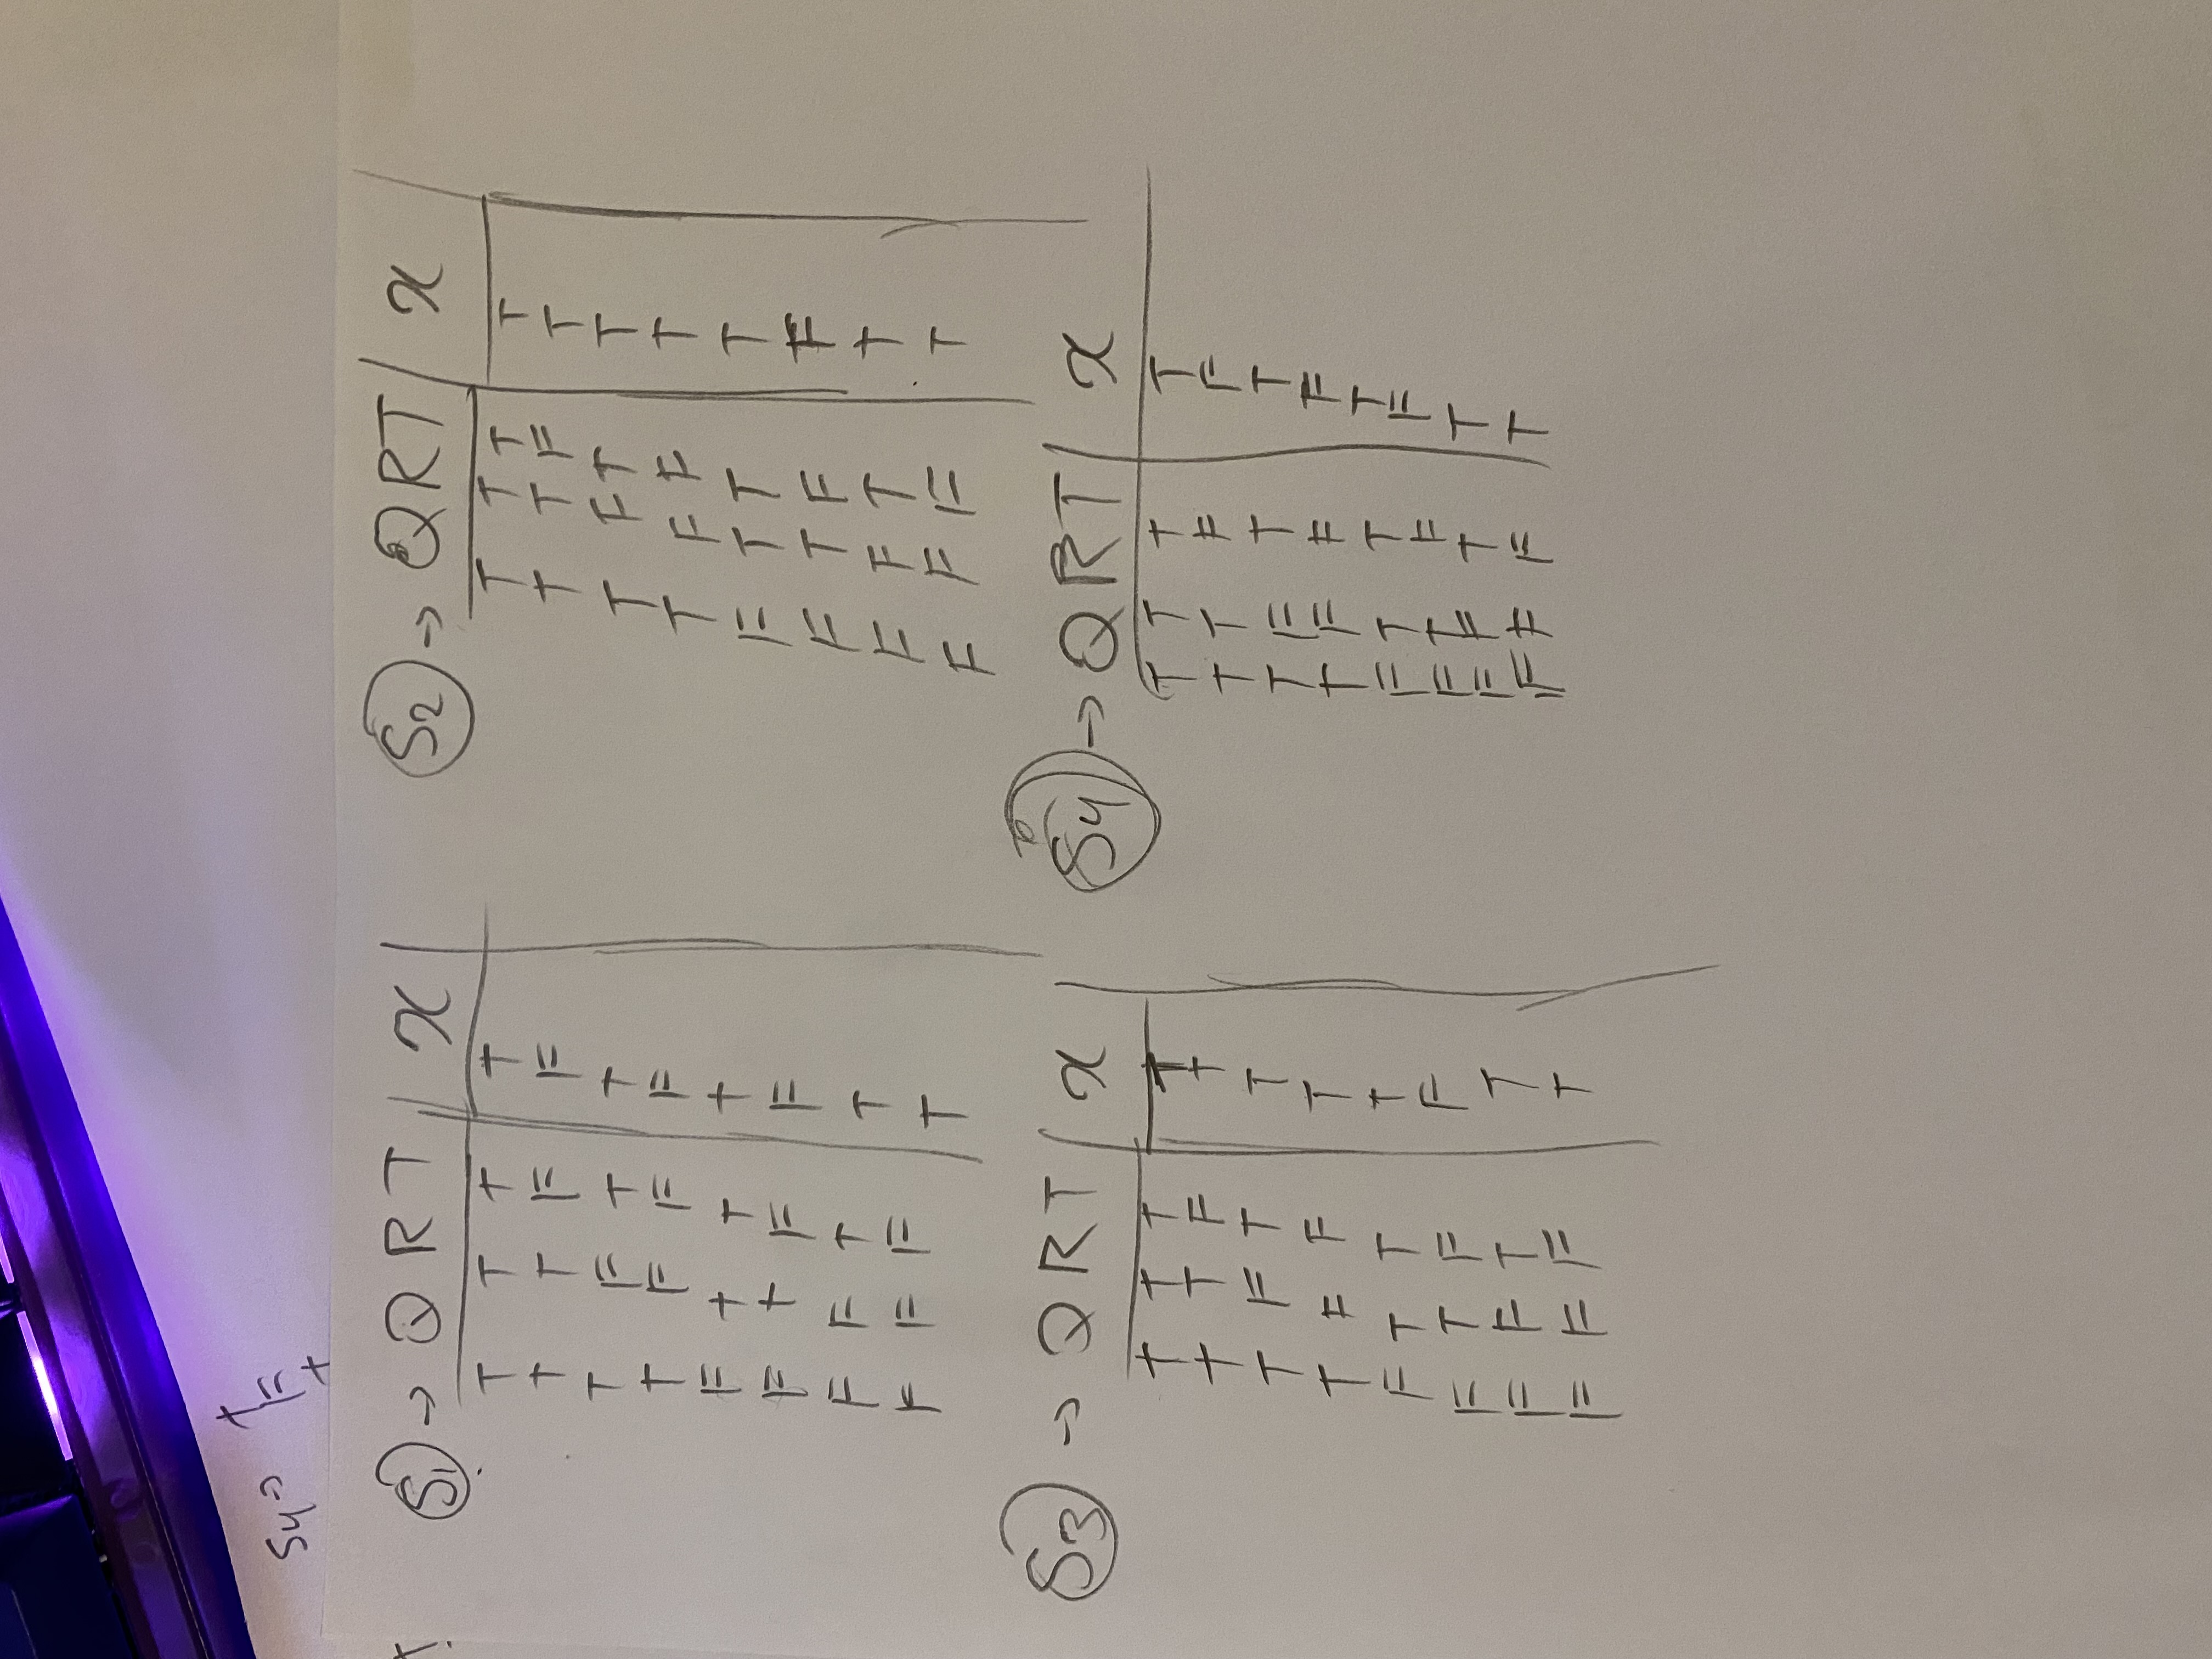 S4 → T
F
T
S1 → Q R T x
T T T T
T T F F
T F T T
T F F F
F T T T
F T F F
F F T T
F F F T
S2 → Q R T x
T T T T
T T F T
T F T T
T F F T
F T T T
F T F F
F F T T
F F F T
S3 → Q R T x
T T T T
T T F T
T F T T
T F F T
F T T T
F T F F
F F T T
F F F T
S4 → Q R T x
T T T T
T T F F
T F T T
T F F F
F T T T
F T F F
F F T T
F F F T